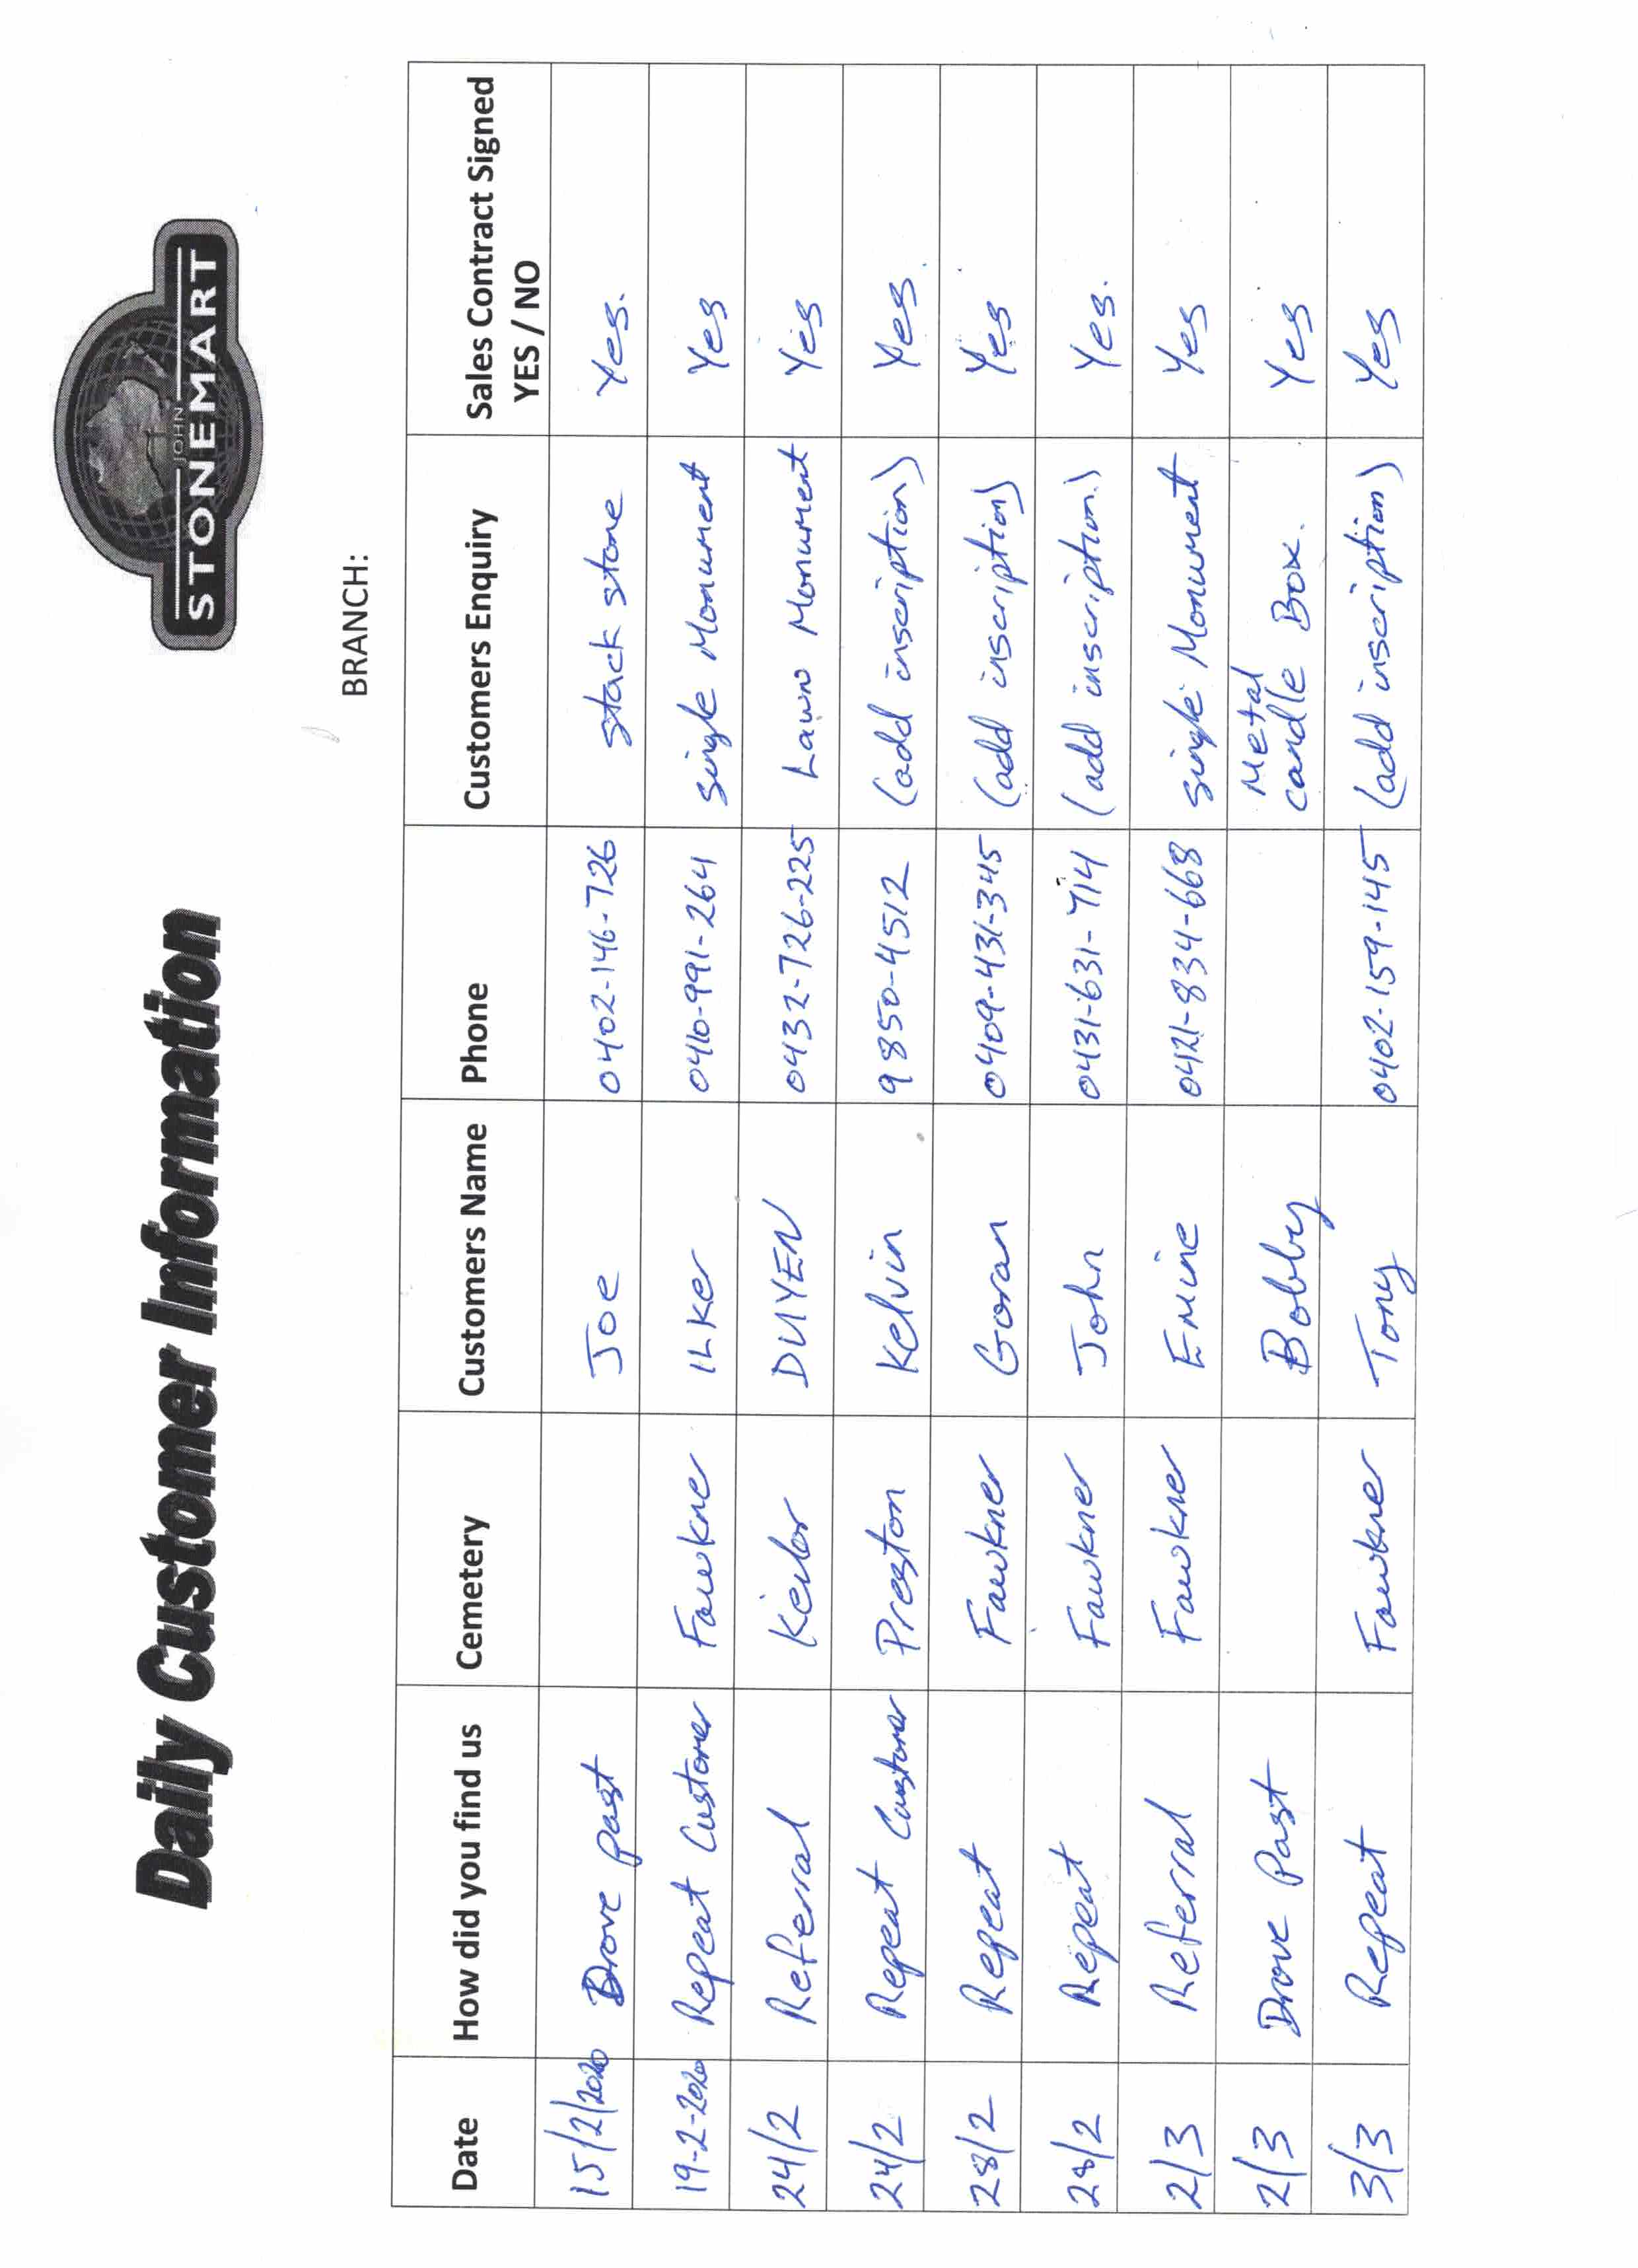 Daily Customer Information
STONEMART
JOHN
BRANCH:
Date How did you find us Cemetery Customers Name Phone Customers Enquiry Sales Contract Signed
YES / NO
15/2/2020 Drove past Joe 0402-146-726 stack stone Yes.
19-2-2020 Repeat Customer Fawkner ILKer 0410-991-264 single Monument Yes
24/2 Referral Keilor DUYEN 0432-726-225 Lawn Monument Yes
24/2 Repeat Customer Preston Kelvin 9850-4512 (add inscription) Yes.
28/2 Repeat Fawkner Goran 0409-431-345 (add inscription) Yes
28/2 Repeat Fawkner John 0431-631-714 (add inscription.) Yes.
2/3 Referral Fawkner Emine 0421-834-668 single Monument Yes
2/3 Drove Past Bobby Metal
candle Box. Yes
3/3 Repeat Fawkner Tony 0402-159-145 (add inscription) Yes